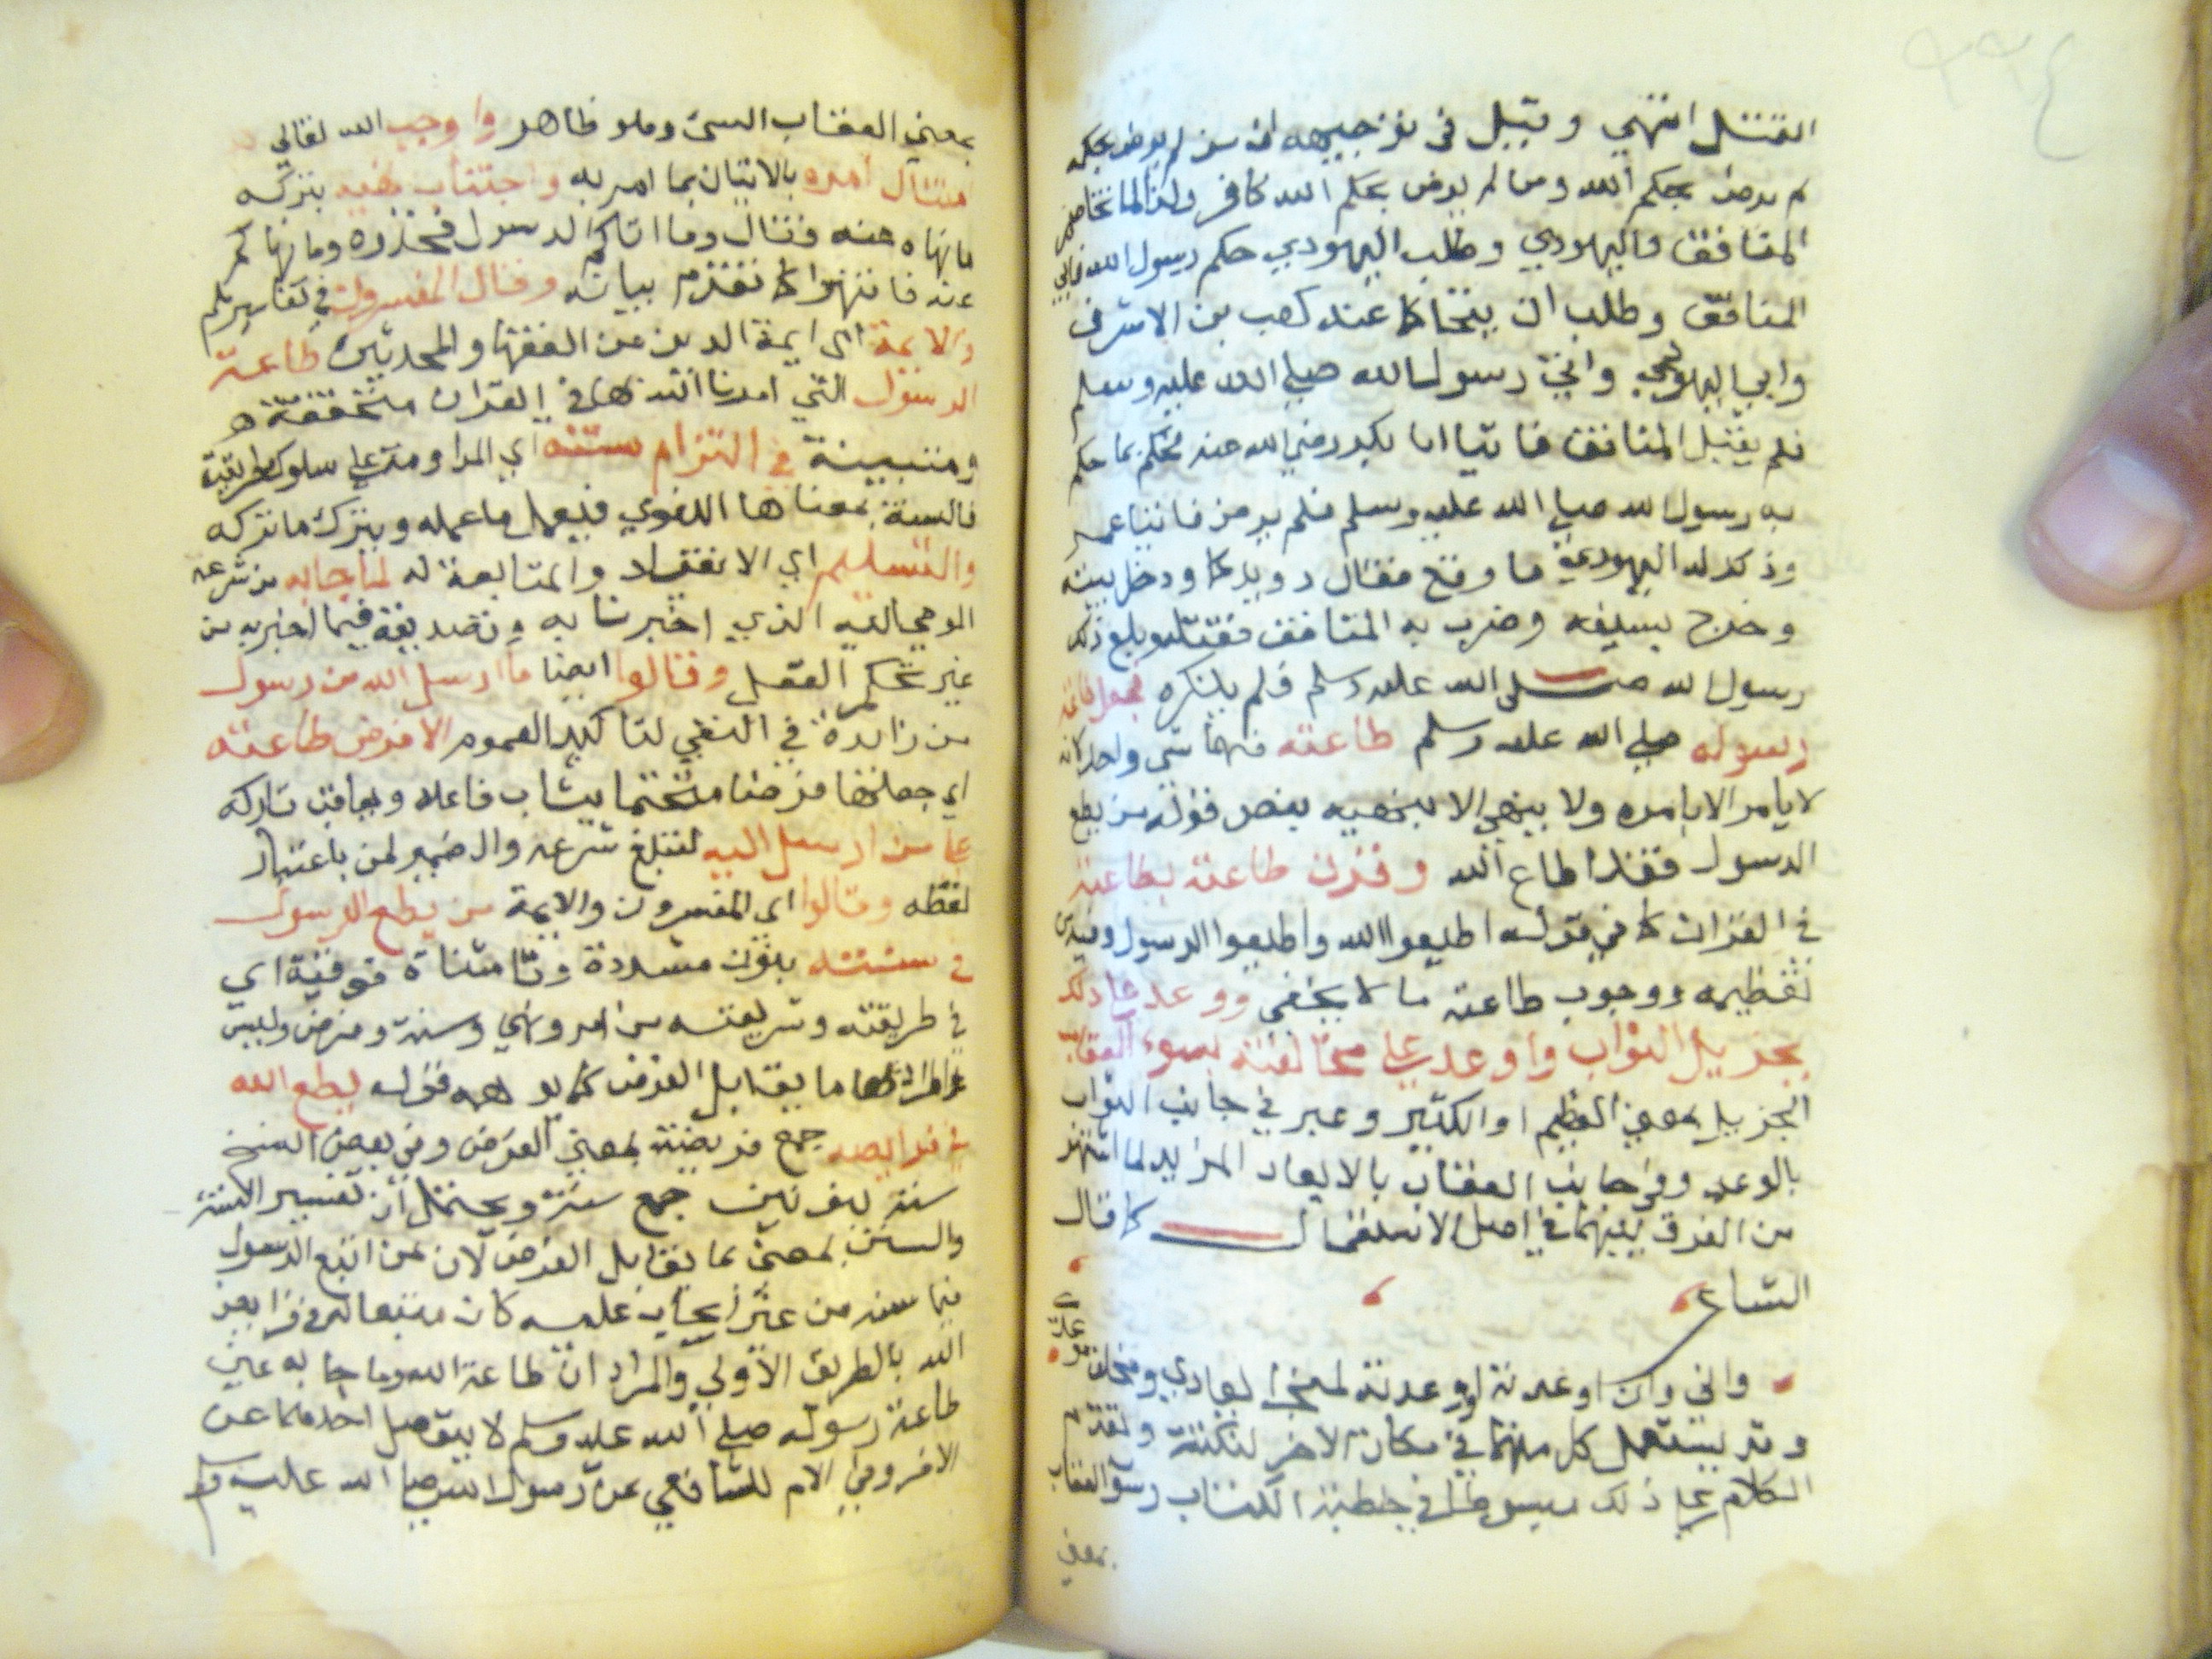 ٩٩٤
القتل انتهى وقيل في توجيهه ان من لم يرض بحكمه
لم يرض بحكم الله ومن لم يرض بحكم الله كافر ولذا لما تخاصم
المنافق واليهودي وطلب اليهودي حكم رسول الله فابى
المنافق وطلب ان يتحاكما عند كعب بن الاشرف
وابى اليهودي واتى رسول الله صلى الله عليه وسلم
فلم يقبل المنافق فاتيا ابا بكر رضي الله عنه فحكم بما حكم
به رسول الله صلى الله عليه وسلم فلم يرض فاتيا عمر
وذكر له اليهودي ما وقع فقال رويدكما ودخل بيته
وخرج بسيفه وضرب به المنافق فقتله وبلغ ذلك
رسول الله صلى الله عليه وسلم فلم ينكره فجعل طاعة
رسوله صلى الله عليه وسلم طاعته فهما شي واحد لانه
لا يامر الا بامره ولا ينهى الا بنهيه بنص قوله من يطع
الرسول فقد اطاع الله وقرن طاعته بطاعته
في القران كما في قوله اطيعوا الله واطيعوا الرسول وفيه من
تعظيمه ووجوب طاعته ما لا يخفى ووعد على ذلك
بجزيل الثواب واوعد على مخالفته بسوء العقاب
الجزيل بمعنى العظيم او الكثير وعبر في جانب الثواب
بالوعد وفي جانب العقاب بالايعاد المزايد لما اشتهر
من الفرق بينهما في اصل الاستعمال كما قال
الشاعر
واني وان اوعدته او وعدته لمخلف ايعادي ومنجز موعدي
وقد يستعمل كل منهما في مكان الاخر لنكتة وتقدم
الكلام على ذلك مبسوطا في خطبة الكتاب وسوء العقاب
بمعنى
بمعنى العقاب السيئ وهو ظاهر واوجب الله تعالى
امتثال امره بالاتيان بما امر به واجتناب نهيه بتركه
ما نهاه عنه فقال وما اتاكم الرسول فخذوه وما نهاكم
عنه فانتهوا كما تقدم بيانه وقال المفسرون في تفاسيرهم
والايمة اي ايمة الدين من الفقها والمحدثين طاعة
الرسول التي امرنا الله بها في القران متحققة
ومتبينة في التزام سنته اي المداومة على سلوك طريقته
فالسنة بمعناها اللغوي فيعمل ما عمله ويترك ما تركه
والتسليم اي الانقياد والمتابعة له لما جا به من شرعه
الموحى اليه الذي اخبرنا به وتصديقه فيما اخبر به من
غير تحكم العقل وقالوا ايضا ما ارسل الله من رسول
من زايدة في النفي لتاكيد العموم الا فرض طاعته
اي جعلها فرضا متحتما يثاب فاعله ويعاقب تاركه
على من ارسل اليه لتبلغ شرعه والضمير لمن باعتبار
لفظه وقالوا اي المفسرون والايمة من يطع الرسول
في سنته بنون مشددة وتا مثناة فوقية اي
في طريقته وشريعته من امر ونهي وسنة وفرض وليس
المراد بها ما يقابل الفرض كما يوهمه قوله يطع الله
في فرايضه جمع فريضة بمعنى الفرض وفي بعض النسخ
سننه بنونين جمع سنة ويحتمل ان تفسير السنة
والسنن بمعنى ما يقابل الفرض لان من اتبع الرسول
فيما سنه من غير ايجاب عليه كان متبعا له في فرايض
الله بالطريق الاولى والمراد ان طاعة الله وما جا به عين
طاعة رسوله صلى الله عليه وسلم لا ينفصل احدهما عن
الاخر وفي الام للشافعي عن رسول الله صلى الله عليه وسلم